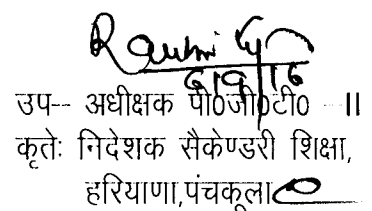 6/9/16
उप-- अधीक्षक पी०जी०टी० -- II
कृतेः निदेशक सैकेण्डरी शिक्षा,
हरियाणा,पंचकूला